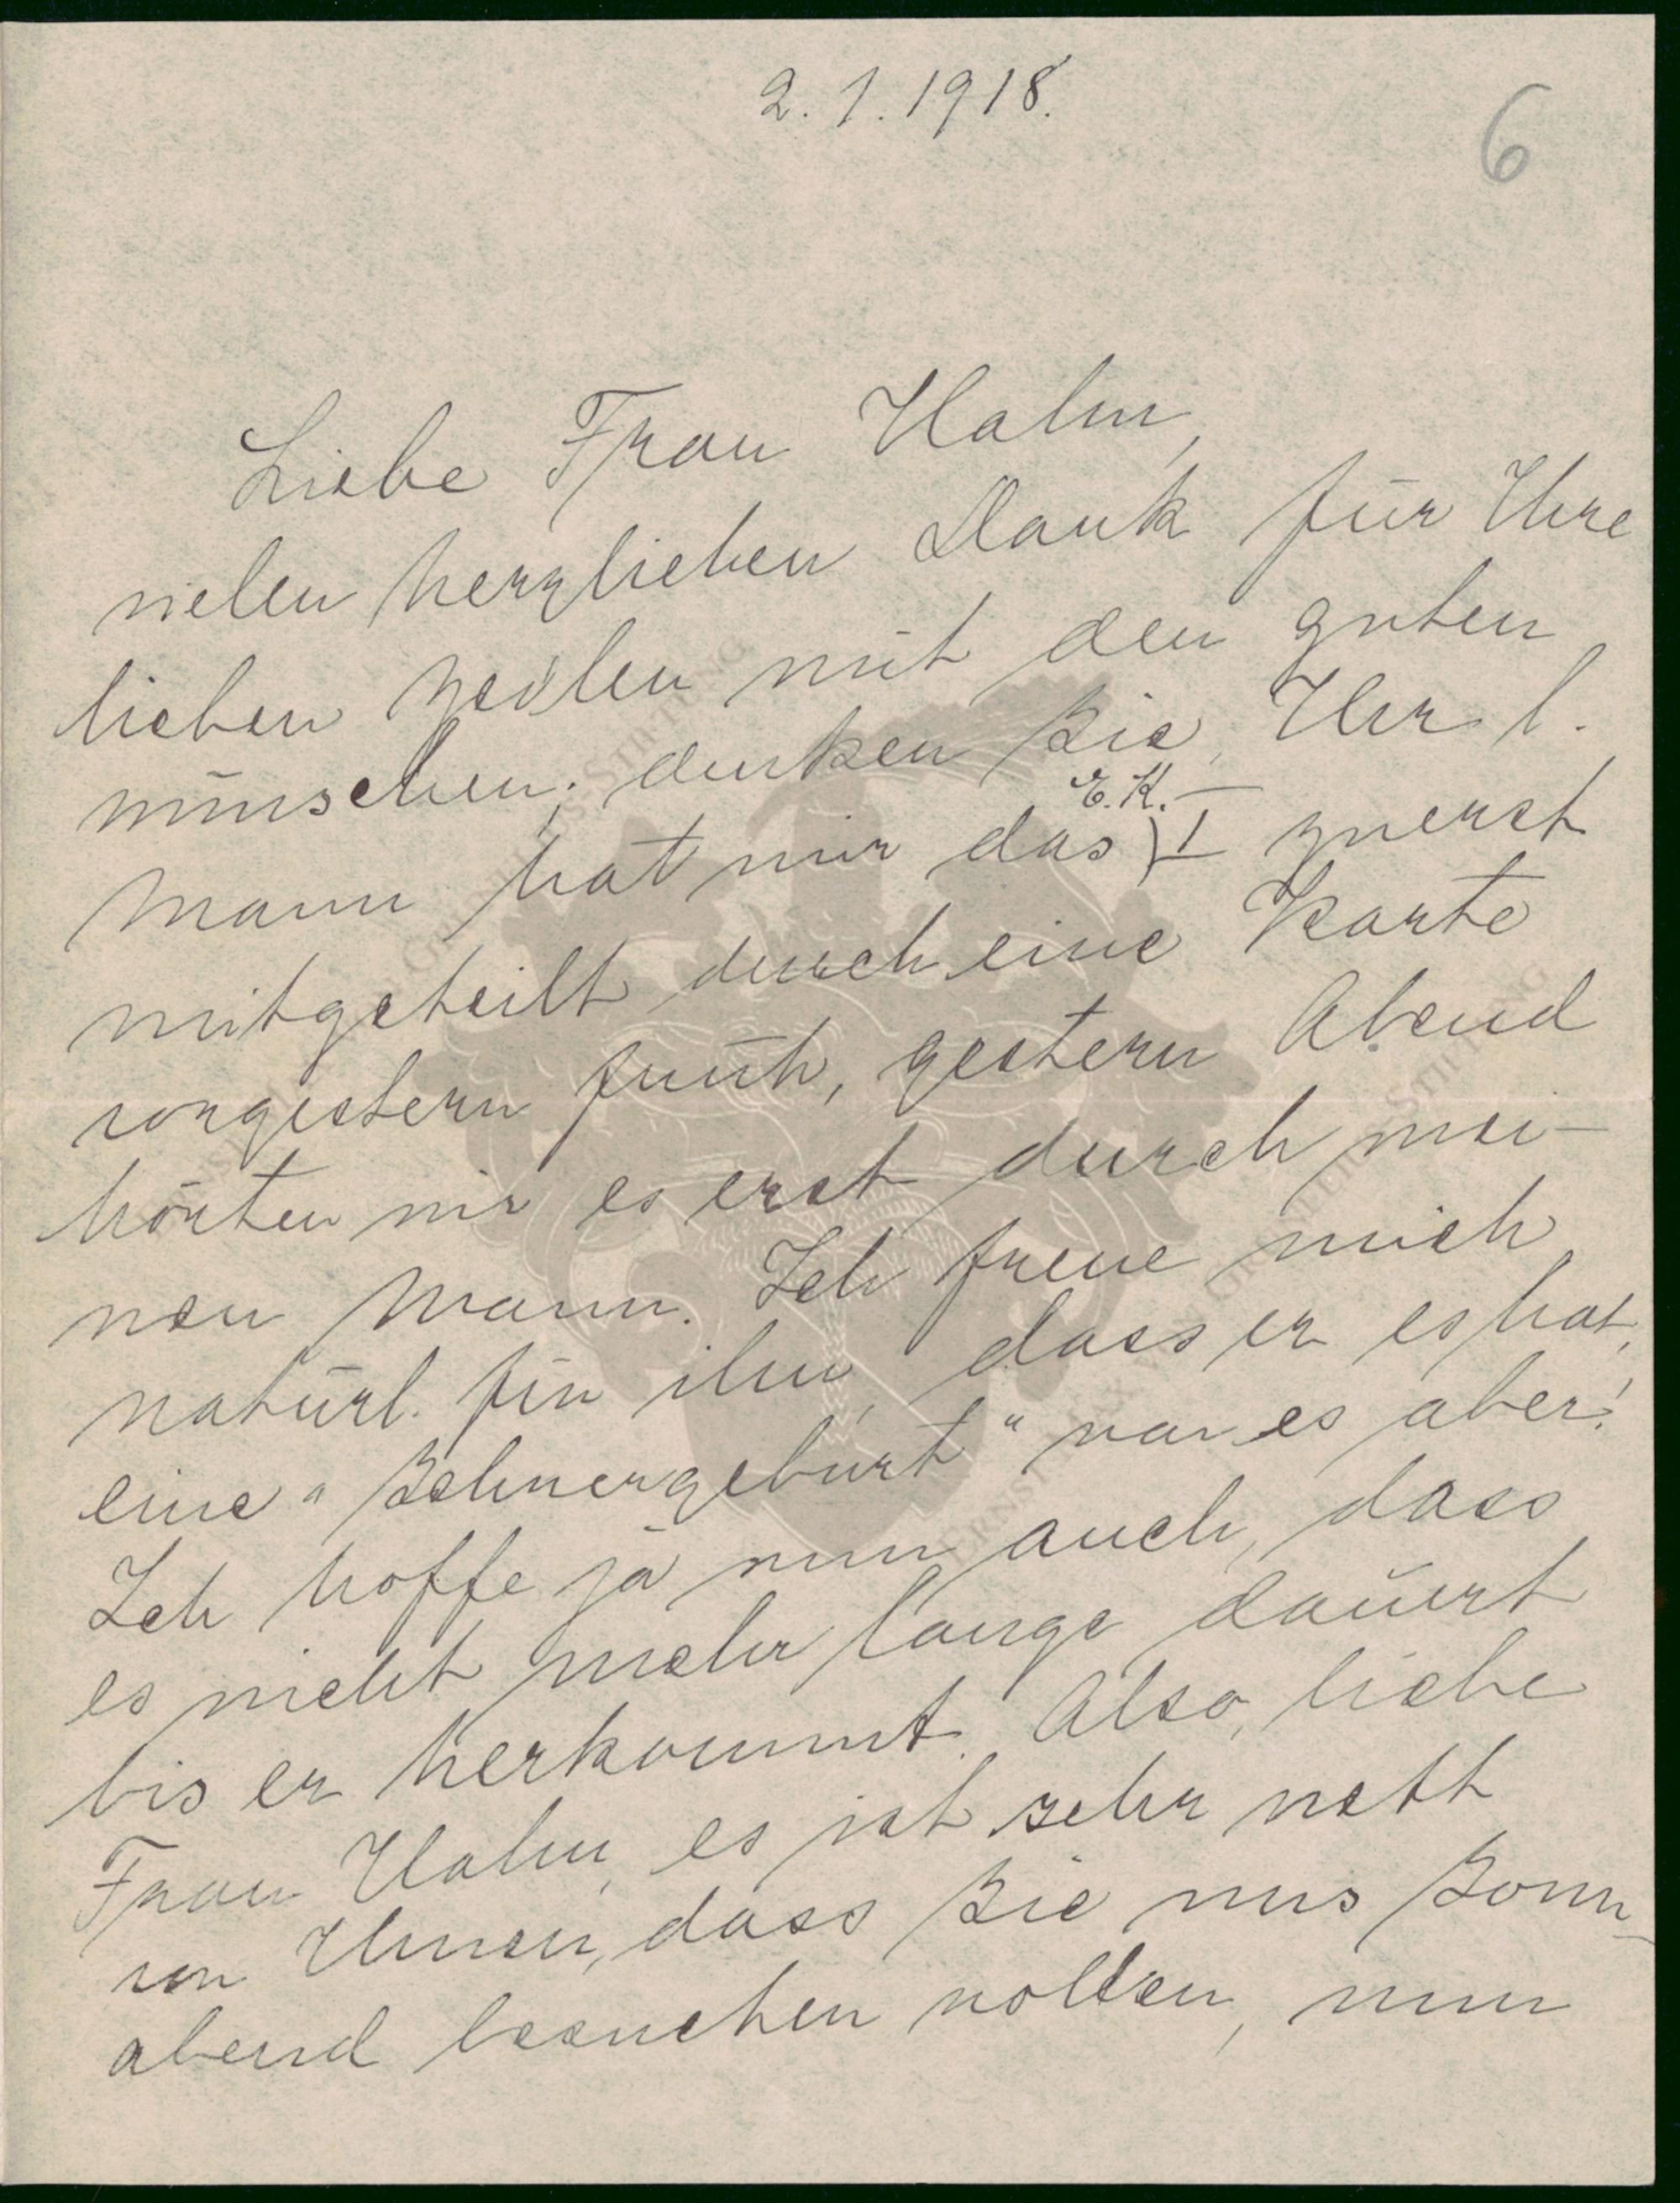 2. 1. 1918.
6
Liebe Frau Hahn,
vielen herzlichen Dank für Ihre
lieben Zeilen mit den guten
Wünschen; denken Sie, Ihr l.
Mann hat mir das E.K. I zuerst
mitgeteilt durch eine Karte
vorgestern früh, gestern Abend
hörten wir es erst durch mei-
nen Mann. Ich freue mich
natürl. für ihn, dass er es hat,
eine "Schwergeburt" war es aber!
Ich hoffe ja nun auch, dass
es nicht mehr lange dauert
bis er herkommt. Also, liebe
Frau Hahn, es ist sehr nett
von Ihnen, dass Sie uns Sonn-
abend besuchen wollen, nun